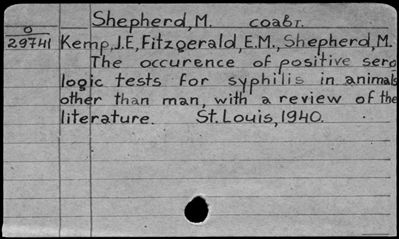 Shepherd, M. соавт.
O
29741
Kemp, J.E, Fitzgerald, E.M., Shepherd, M.
The occurence of positive sero
logic tests for syphilis in animals
other than man, with a review of the
literature. St. Louis, 1940.